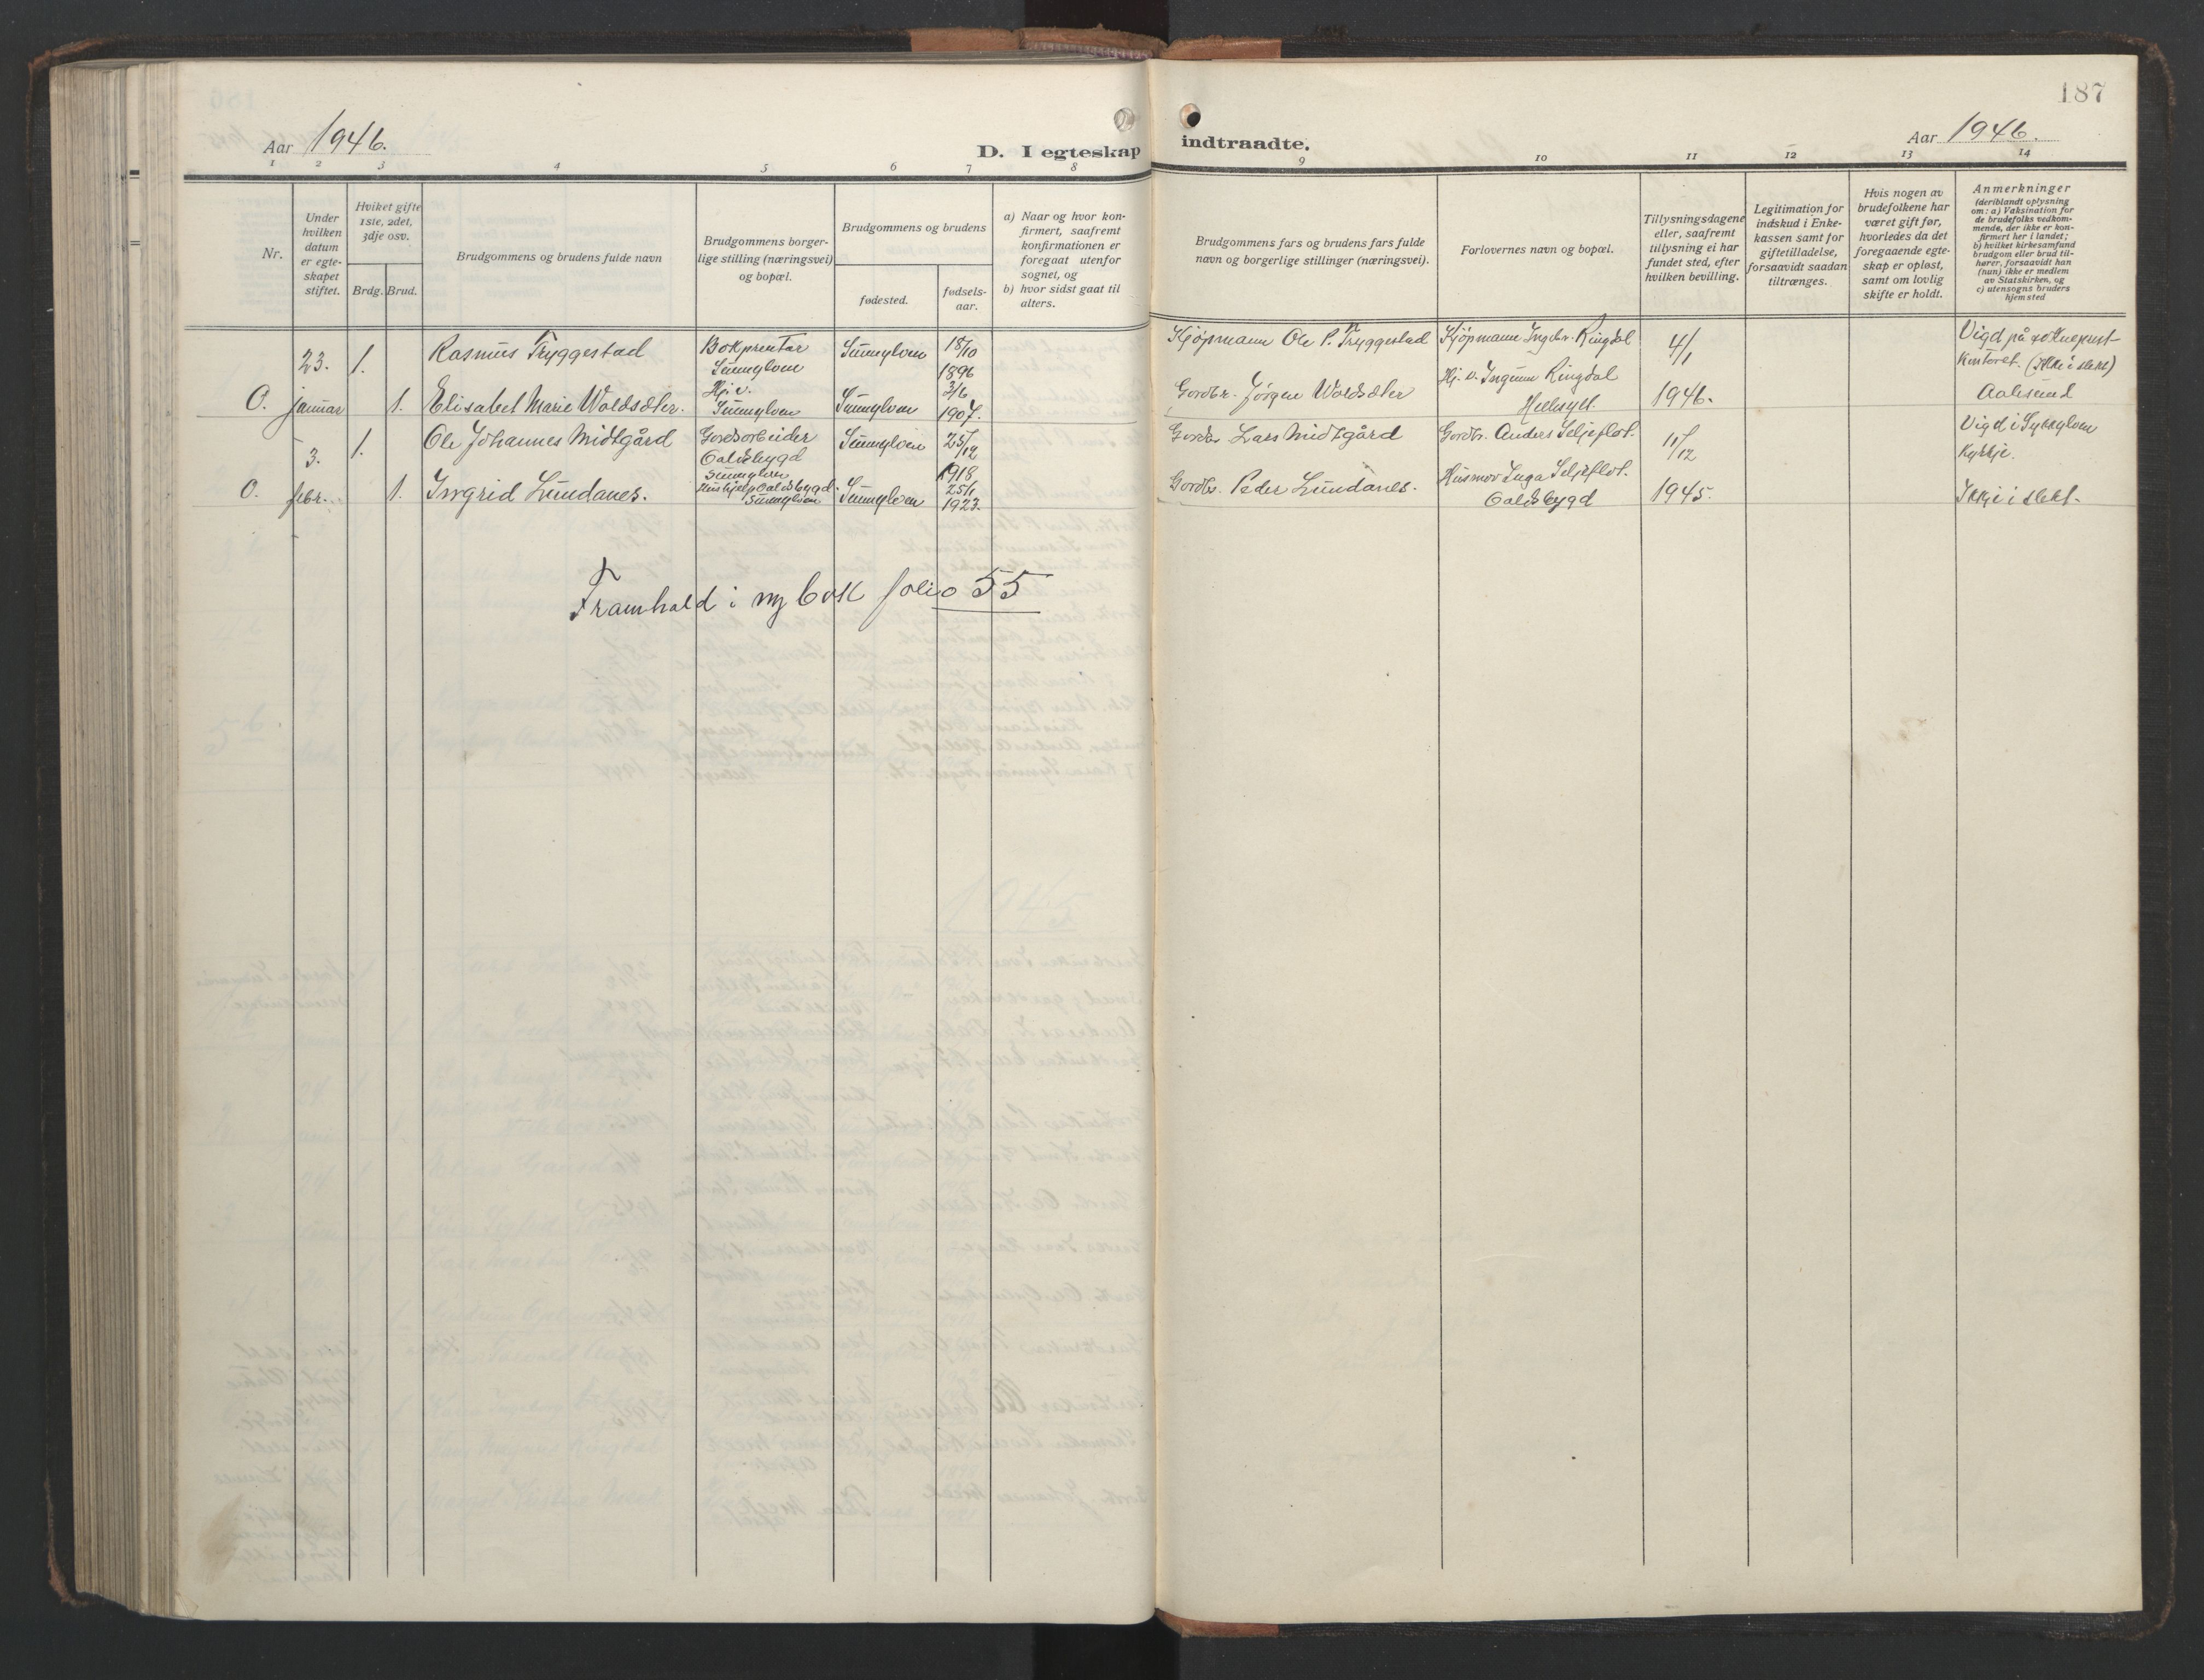 187
Aar 1946.
D. I egteskap indtraadte.
Aar 1946.
1 2 3 4 5 6 7 8 9 10 11 12 13 14
Nr.
Under
hvilken
datum
er egte-
skapet
stiftet.
Hviket gifte
1ste, 2det,
3dje osv.
Brdg. Brud.
Brudgommens og brudens fulde navn
Brudgommens borger-
lige stilling (næringsvei)
og bopæl.
Brudgommens og brudens
fødested.
fødsels-
aar.
a) Naar og hvor kon-
firmert, saafremt
konfirmationen er
foregaat utenfor
sognet, og
b) hvor sidst gaat til
alters.
Brudgommens fars og brudens fars fulde
navn og borgerlige stillinger (næringsvei).
Forlovernes navn og bopæl.
Tillysningsdagene
eller, saafremt
tillysning ei har
fundet sted, efter
hvilken bevilling.
Legitimation for
indskud i Enke-
kassen samt for
giftetilladelse,
forsaavidt saadan
tiltrænges.
Hvis nogen av
brudefolkene har
været gift før,
hvorledes da det
foregaaende egte-
skap er opløst,
samt om lovlig
skifte er holdt.
Anmerkninger
(deriblandt oplysning
om: a) Vaksination for
de brudefolks vedkom-
mende, der ikke er kon-
firmert her i landet;
b) hvilket kirkesamfund
brudgom eller brud til-
hører, forsaavidt han
(hun) ikke er medlem
av Statskirken, og
c) utensogns bruders
hjemsted
23.
januar
O.
1.
Rasmus Tryggestad
Bokprentar
Sunnylven
Sunnylven
18/10
1896
Kjøpmann Ole P. Tryggestad
Kjøpmann Ingebr. Ringdal
4/1
Vigd på
kontoret. (Ikkje i slekt)
1. Elisabet Marie Woldsæter.
Hj. v.
Sunnylven
Sunnylven
3/6
1907.
Gardbr. Jørgen Woldsæter
Hj. v. Ingunn Ringdal
Hellesylt.
1946.
Aalesund
3.
febr.
O.
1.
Ole Johannes Midtgård
Gardsarbeider
Sunnylven
Sunnylven
25/12
1918
Gardbr. Lars Midtgård
Gardbr. Anders Seljeflot.
11/12
Vigd i Sykkylven
Kyrkje.
1. Ingrid Lundanes.
Sunnylven
Sunnylven
25/1
1923.
Gardbr. Peder Lundanes.
Husmor Inga Seljeflot.
1945.
Ikkje i slekt.
Framhald i ny bok folio 55